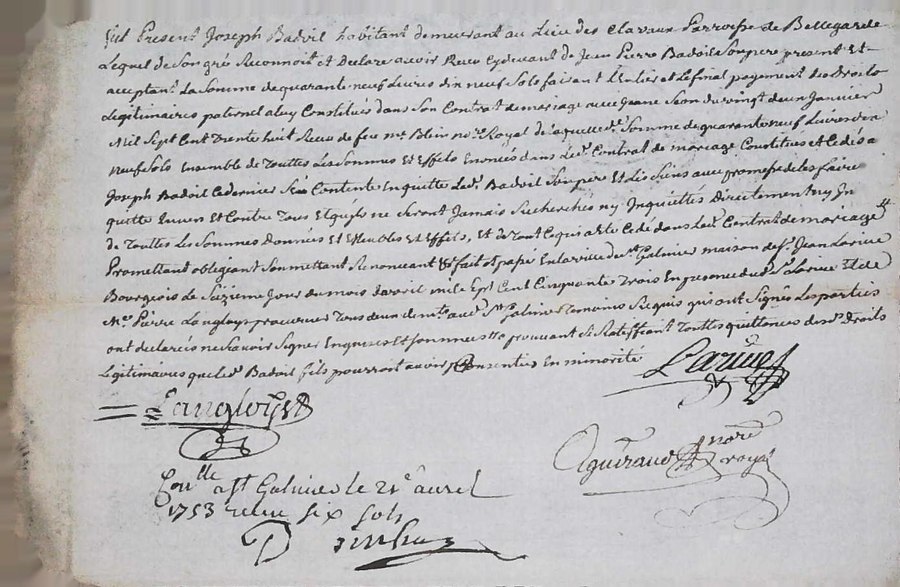 fut Present Joseph Badoil habitant demeurant au Lieu des Clavaux Parroisse de Bellegarde
Lequel de Son gré Reconnoit et Declare avoir Receu Cydevant de Jean Pierre Badoil Son pere present Et
acceptant La Somme de quarante neuf Livres dix neuf Sols faisant L'entier et Le final payement des Droits
Legitimaires paternel a luy Constitués dans Son Contrat de mariage avec Jeane du vingt deux Janvier
Mil Sept Cent Trente huit Receu de feu me Blein nore Royal de laquelle de Somme de quarante neuf Livres dix
neuf Sols Ensemble de Touttes Les Sommes Et Effets Enoncés dans Led. Contrat de mariage Constitues et Cedés a
Joseph Badoil Ce dernier Sen Contente En quitte Led. Badoil Son pere Et Les Siens avec promesse de les faire
quitte Envers Et Contre Tous Et quils ne Seront Jamais Recherchés ny Inquiettés Directement ny In
de Touttes Les Sommes Données Et Meubles Et Effets, Et de Tout Ce qui a Eté Cedé dans Led. Contrat de mariage
Promettant obligeant Soumettant Renonceant fait et passé En la ville de St Galmier maison de Sr Jean Larive
Bourgeois le Seizieme Jour du mois davril mil Sept Cent Cinquante Trois En presence dud. Sr Larive Et de
Me Pierre Langloys procureur Tous deux aud. St Galmier Temoins Requis qui ont Signé Les parties
ont declarés ne Scavoir Signer Enquis Et Sommés approuvant Et Ratiffiant Touttes quittances de Droits
Legitimaires que led. Badoil fils pourroit avoir Consenties En minorité
Larive
Langloys
Aguiraud nore royal
Conlle a St Galmier le 21e avril
1753 receu six sols